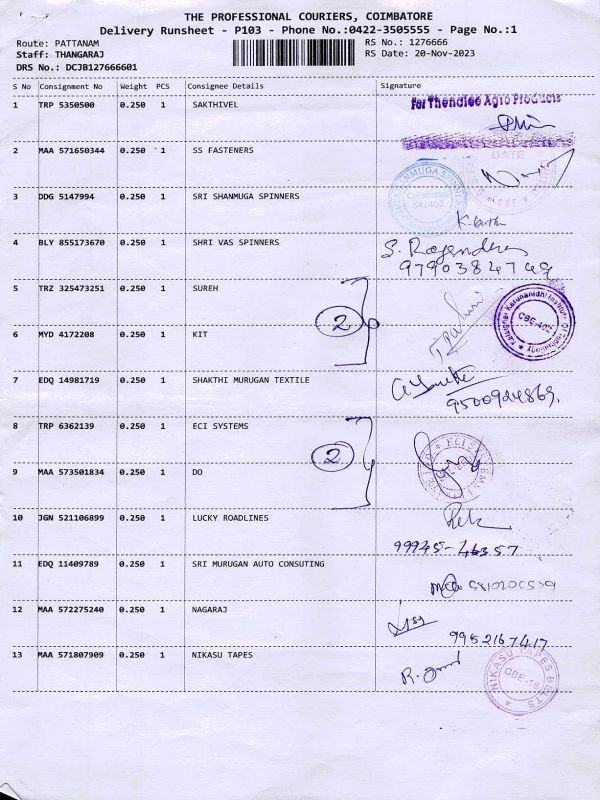 THE PROFESSIONAL COURIERS, COIMBATORE
Delivery Runsheet - P103 - Phone No.:0422-3505555 - Page No.:1
Route: PATTANAM RS No.: 1276666
Staff: THANGARAJ RS Date: 20-Nov-2023
DRS No.: DCJB127666601
S No Consignment No Weight PCS Consignee Details Signature
1 TRP 5350500 0.250 1 SAKTHIVEL
For Thendlee Agro Products
2 MAA 571650344 0.250 1 SS FASTENERS
DATE
CBE
3 DDG 5147994 0.250 1 SRI SHANMUGA SPINNERS
SHANMUGA SPINNERS
Coimbatore
641402
4 BLY 855173670 0.250 1 SHRI VAS SPINNERS
S. Rajendran
9790384749
5 TRZ 325473251 0.250 1 SUREH
2
6 MYD 4172208 0.250 1 KIT
Kalaignar Karunanidhi Institute Of Technology
CBE-402
7 EDQ 14981719 0.250 1 SHAKTHI MURUGAN TEXTILE
9500924869.
8 TRP 6362139 0.250 1 ECI SYSTEMS
2
ECI SYSTEMS
9 MAA 573501834 0.250 1 DO
10 JGN 521106899 0.250 1 LUCKY ROADLINES
99945-46357
11 EDQ 11409789 0.250 1 SRI MURUGAN AUTO CONSUTING
12 MAA 572275240 0.250 1 NAGARAJ
9952167417
13 MAA 571807909 0.250 1 NIKASU TAPES
NIKASU TAPES BELTS
CBE-16